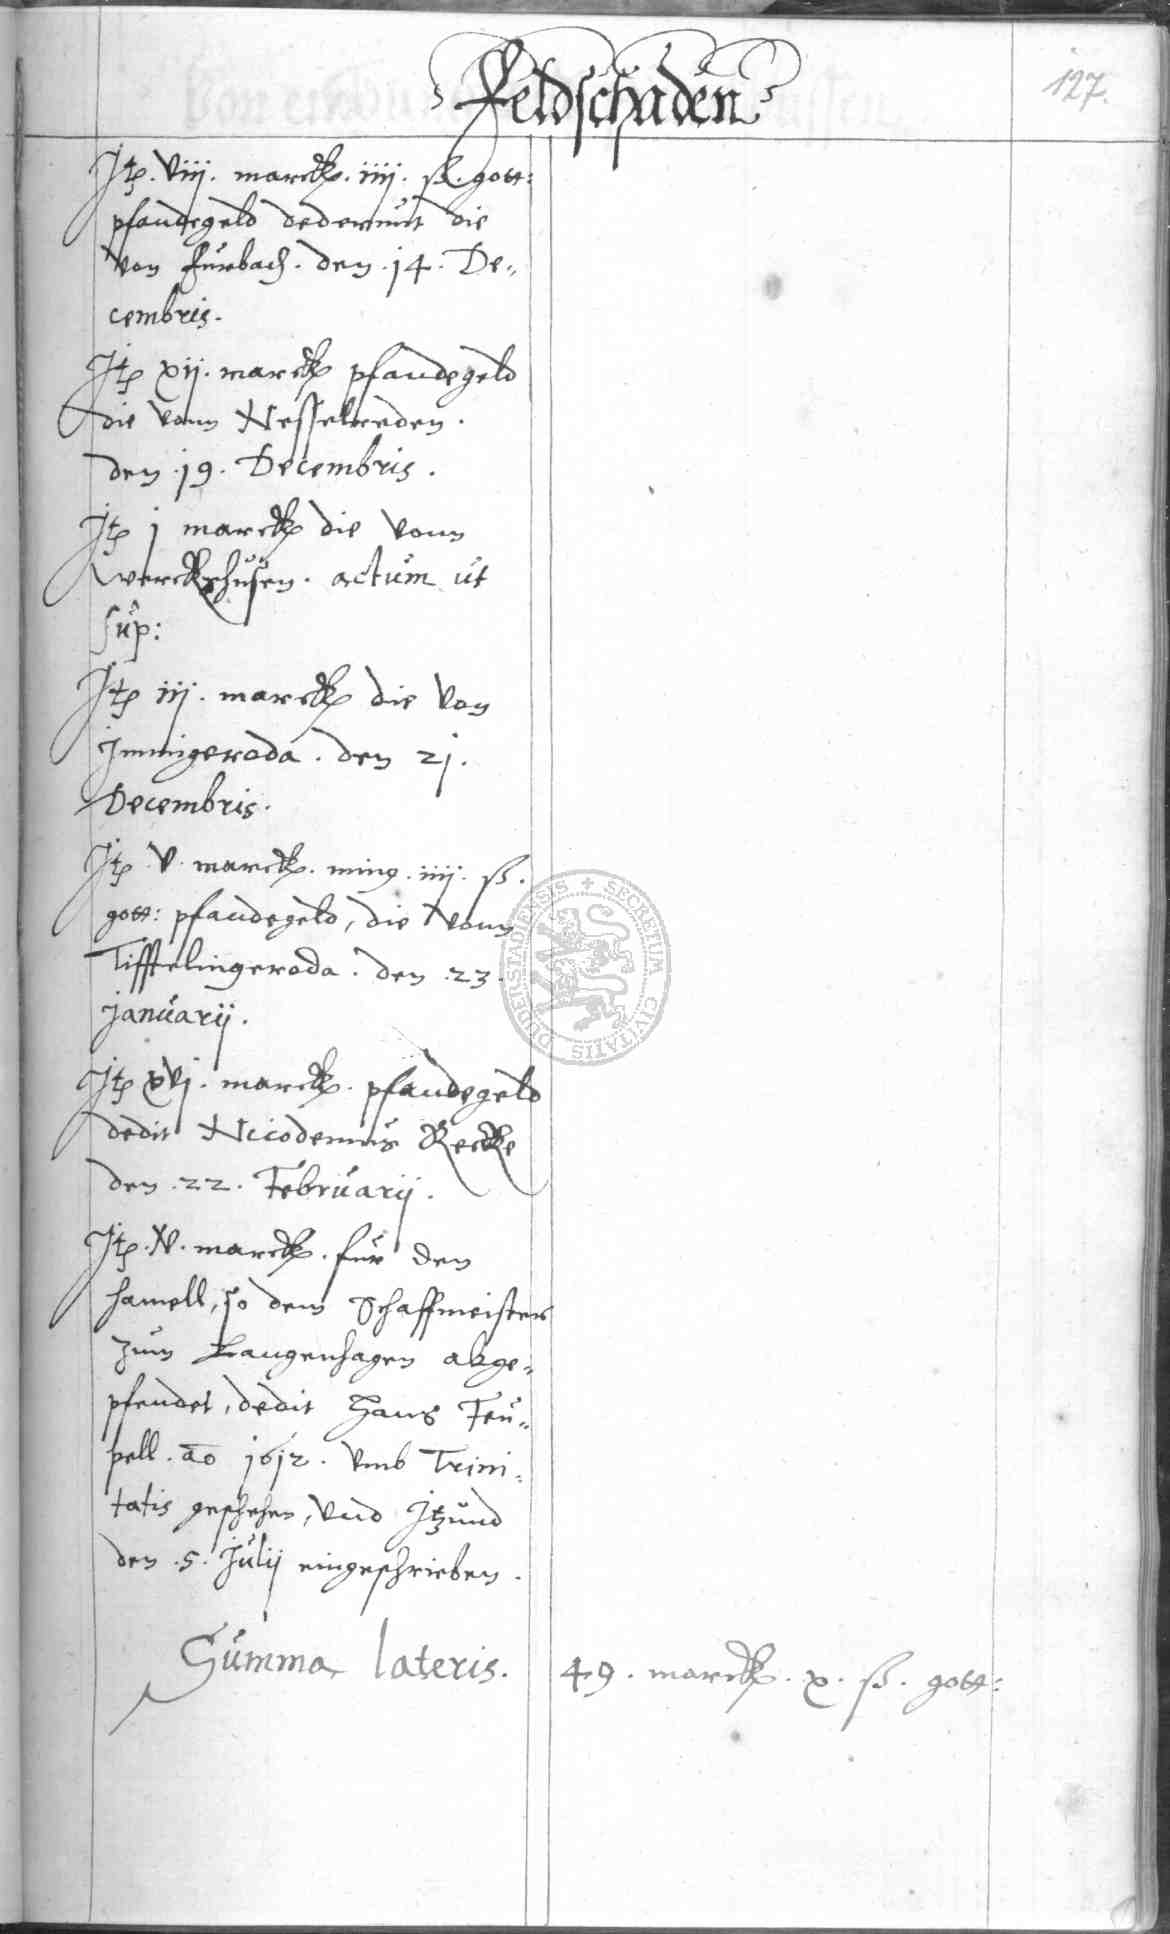 Feldschaden
127.
Jtz. viij. marck. iiij. ß. gott:
pfandegeld dederunt die
von Furbach. den .14. De„
cembris.
Jtz xij. marck pfandegeld
die vonn Nesselreden.
den .19. Decembris.
Jtz j marck die vonn
Werckshusen. actum ut
sup:
Jtz iij. marck die von
Jmmigeroda. den 21.
Decembris.
Jtz v. marck. ming. iiij. ß.
gott: pfandegeld, die vonn
Tifftelingeroda. den .23.
Januarij.
Jtz xvj. marck. pfandegeld
dedit Nicodemus Recke
den .22. Februarij.
Jtz. v. marck. fur den
hamell, so dem Schaffmeister
zum Langenhagen abge„
pfendet, dedit Hans Teu„
pell. ao 1612. vmb Trini„
tatis geschehen, vnd Jtzund
den .5. Julij eingeschrieben.
Summa lateris. 49. marck. x. ß. gott:
SECRETUM CIVITATIS DUDERSTADIENSIS